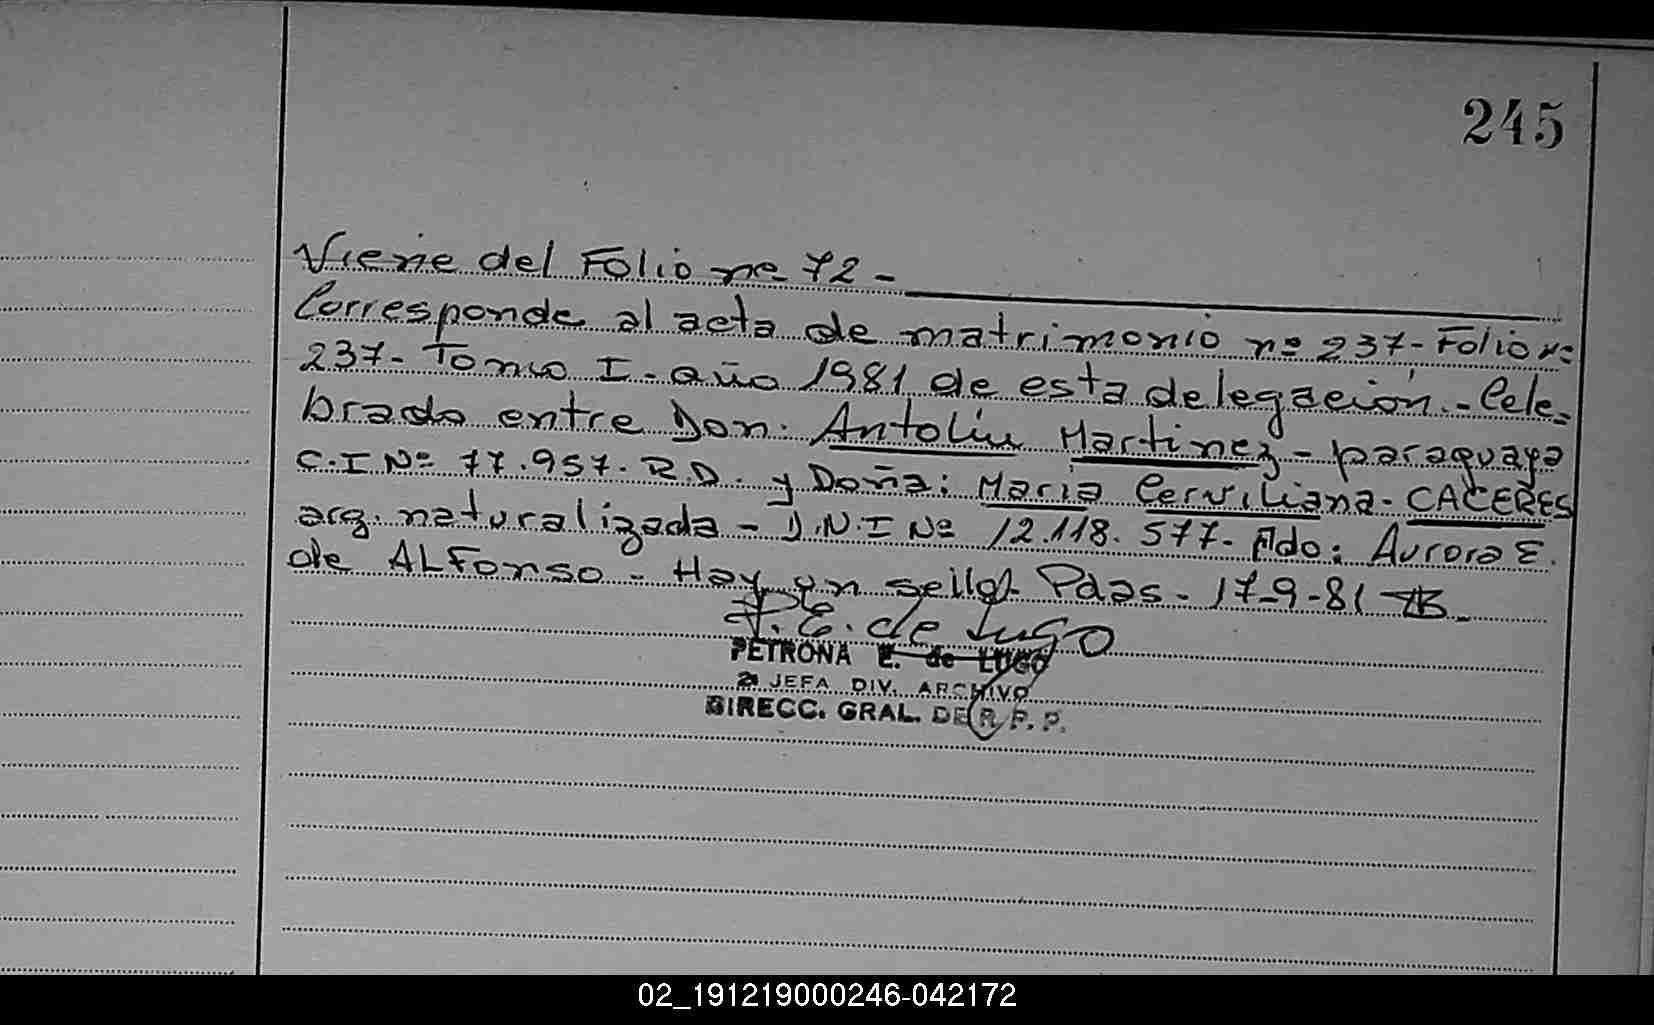 245
Viene del Folio nº 72 -
Corresponde al acta de matrimonio nº 237 - Folio nº
237 - Tomo I - año 1981 de esta delegación. - Cele-
brado entre Don. Antolin Martinez - paraguayo
C.I Nº 77.957. R.D. y Doña: Maria Cerviliana - CACERES
arg. naturalizada - D.N.I Nº 12.118.577 - Fdo: Aurora E.
de ALFonso - Hay un sello. Pdas - 17-9-81
P. E. de Lugo
PETRONA E. de LUGO
JEFA DIV. ARCHIVO
DIRECC. GRAL. DE R. P. P.
02_191219000246-042172